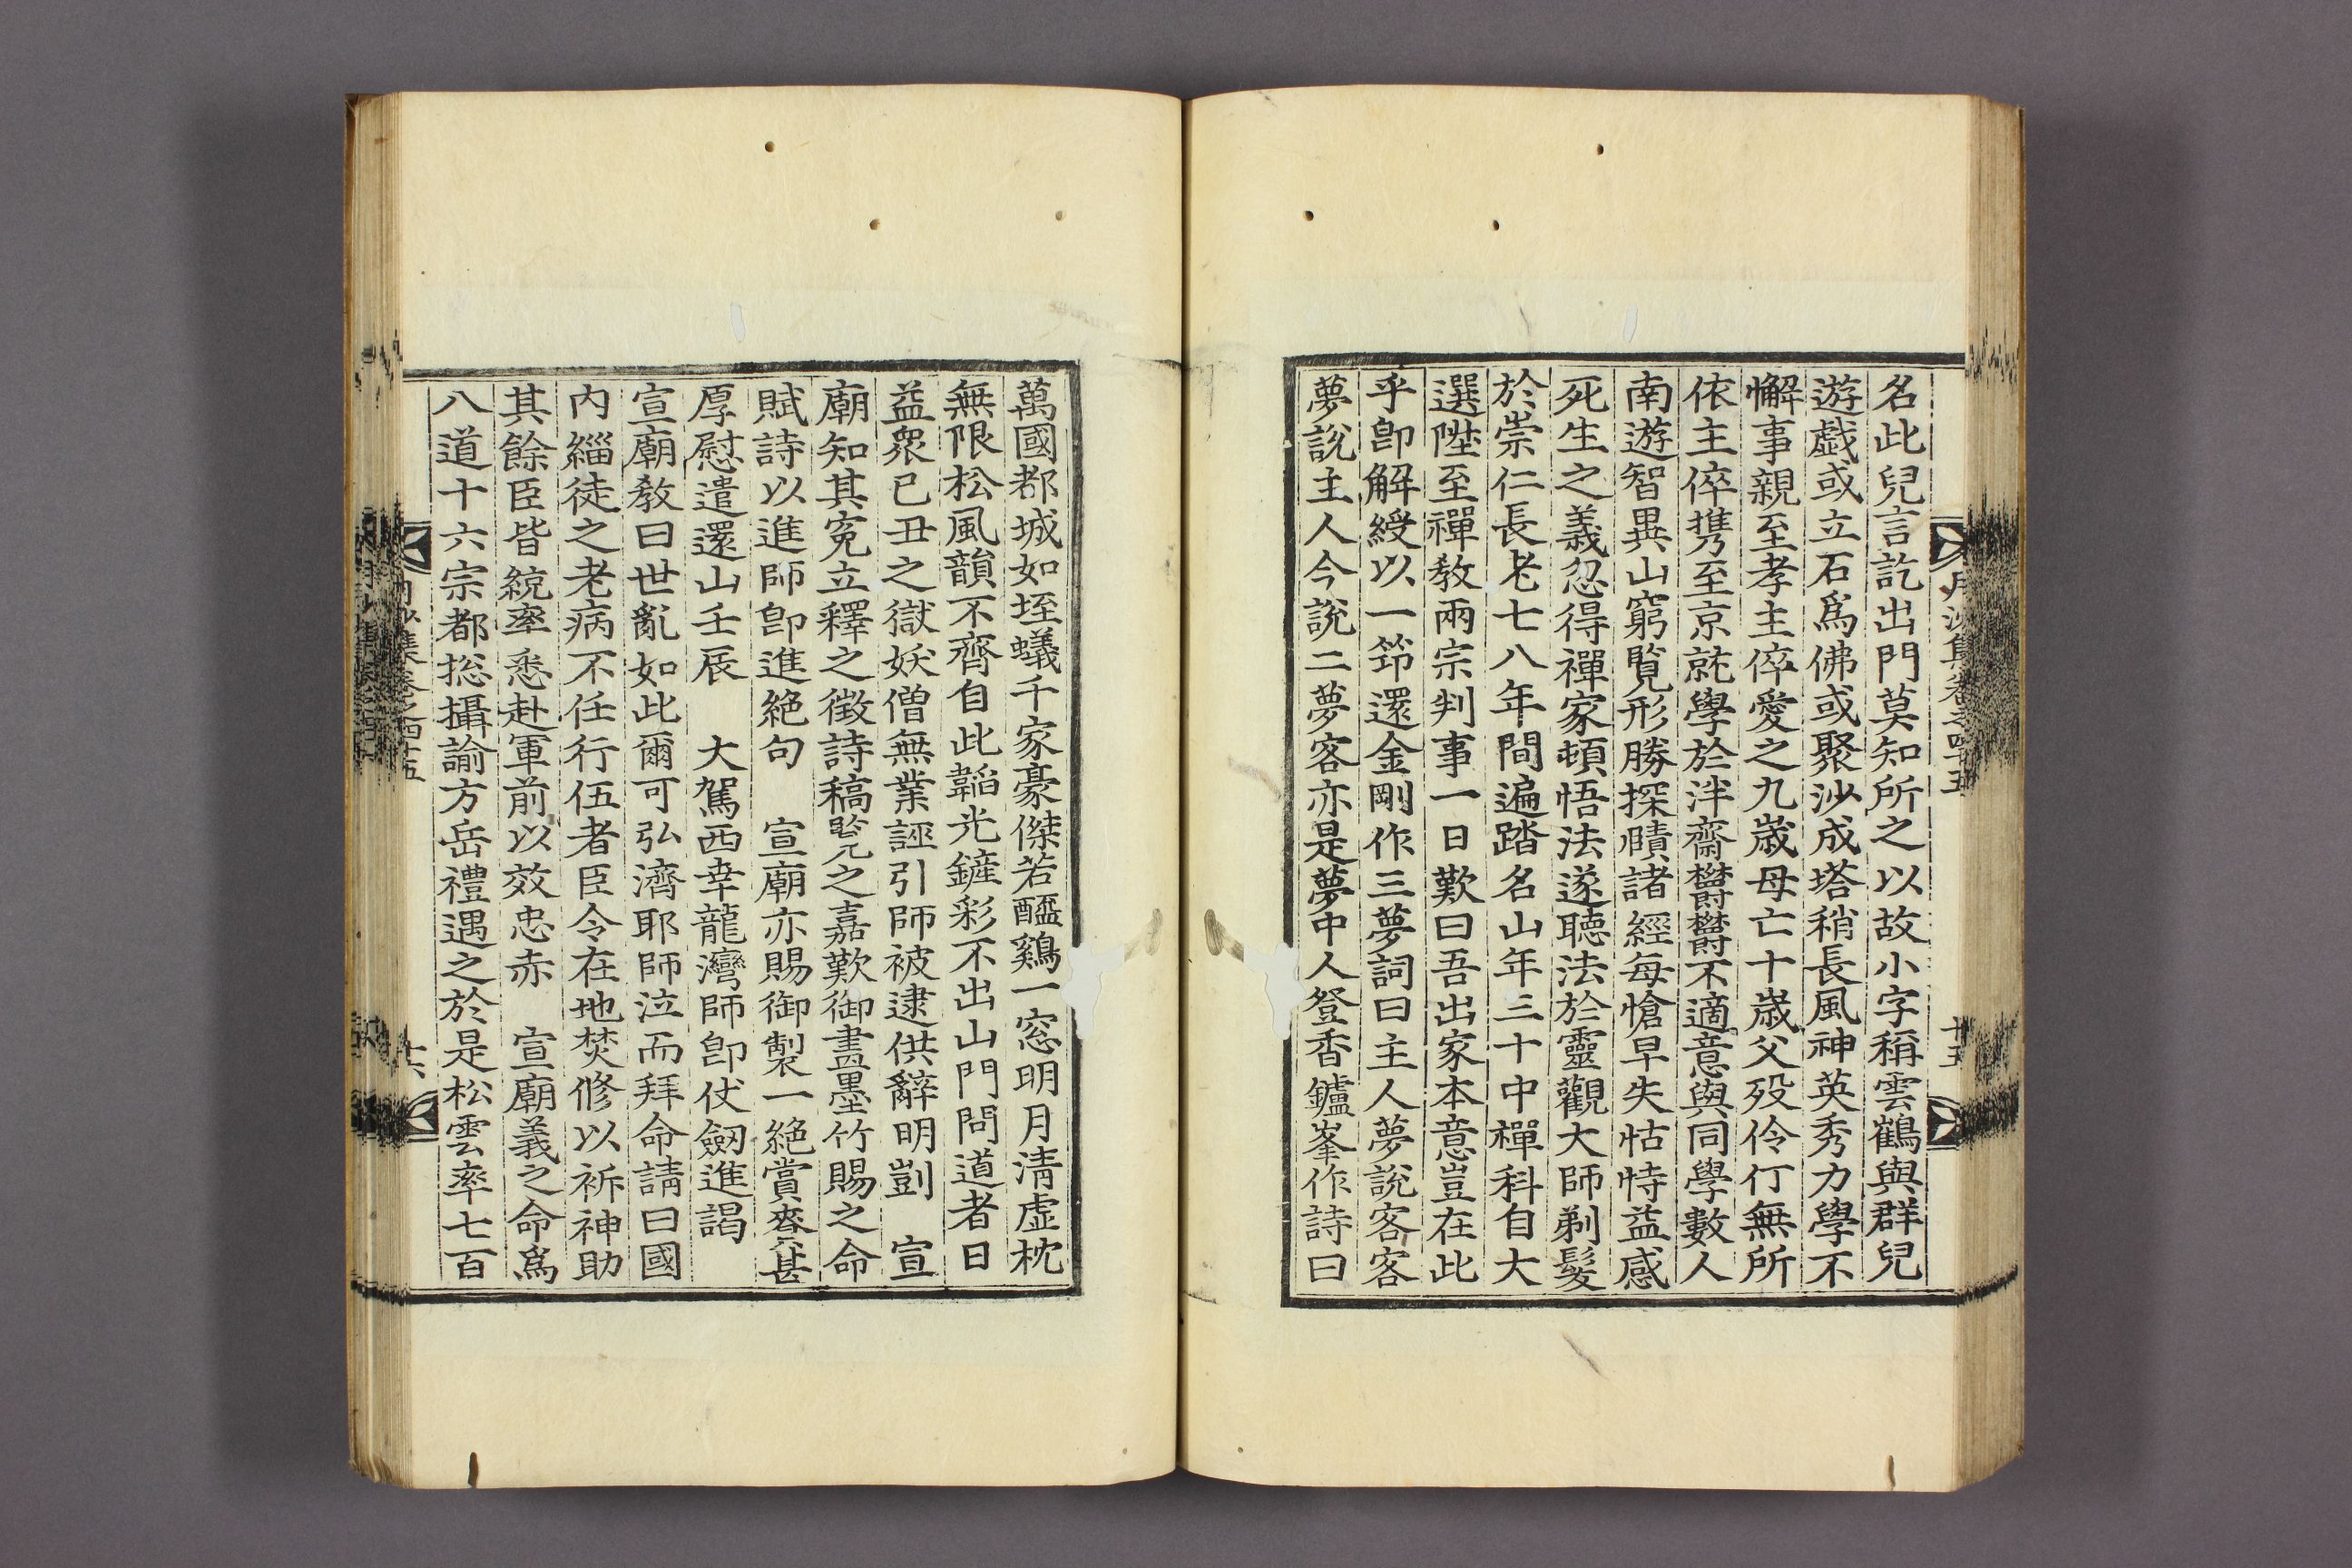 名此兒言訖出門莫知所之以故小字稱雲鶴與群兒
遊戱或立石爲佛或聚沙成塔稍長風神英秀力學不
懈事親至孝主倅愛之九歲母亡十歲父歿伶仃無所
依主倅携至京就學於泮齋欝欝不適意與同學數人
南遊智異山窮覽形勝探賾諸經每愴早失怙恃益感
死生之義忽得禪家頓悟法遂聽法於靈觀大師剃髮
於崇仁長老七八年間遍踏名山年三十中禪科自大
選陞至禪敎兩宗判事一日歎曰吾出家本意豈在此
乎卽解綬以一笻還金剛作三夢詞曰主人夢說客客
夢說主人今說二夢客亦是夢中人登香鑪峯作詩曰
月沙集卷之四十五
十五
萬國都城如垤蟻千家豪傑若醯鷄一窓明月淸虛枕
無限松風韻不齊自此韜光鏟彩不出山門問道者日
益衆已丑之獄妖僧無業誣引師被逮供辭明剴 宣
廟知其寃立釋之徵詩稿覽之嘉歎御畫墨竹賜之命
賦詩以進師卽進絶句 宣廟亦賜御製一絶賞賚甚
厚慰遣還山壬辰 大駕西幸龍灣師卽仗劒進謁
宣廟敎曰世亂如此爾可弘濟耶師泣而拜命請曰國
內緇徒之老病不任行伍者臣令在地焚修以祈神助
其餘臣皆統率悉赴軍前以效忠赤 宣廟義之命爲
八道十六宗都摠攝諭方岳禮遇之於是松雲率七百
月沙集卷之四十五
十六